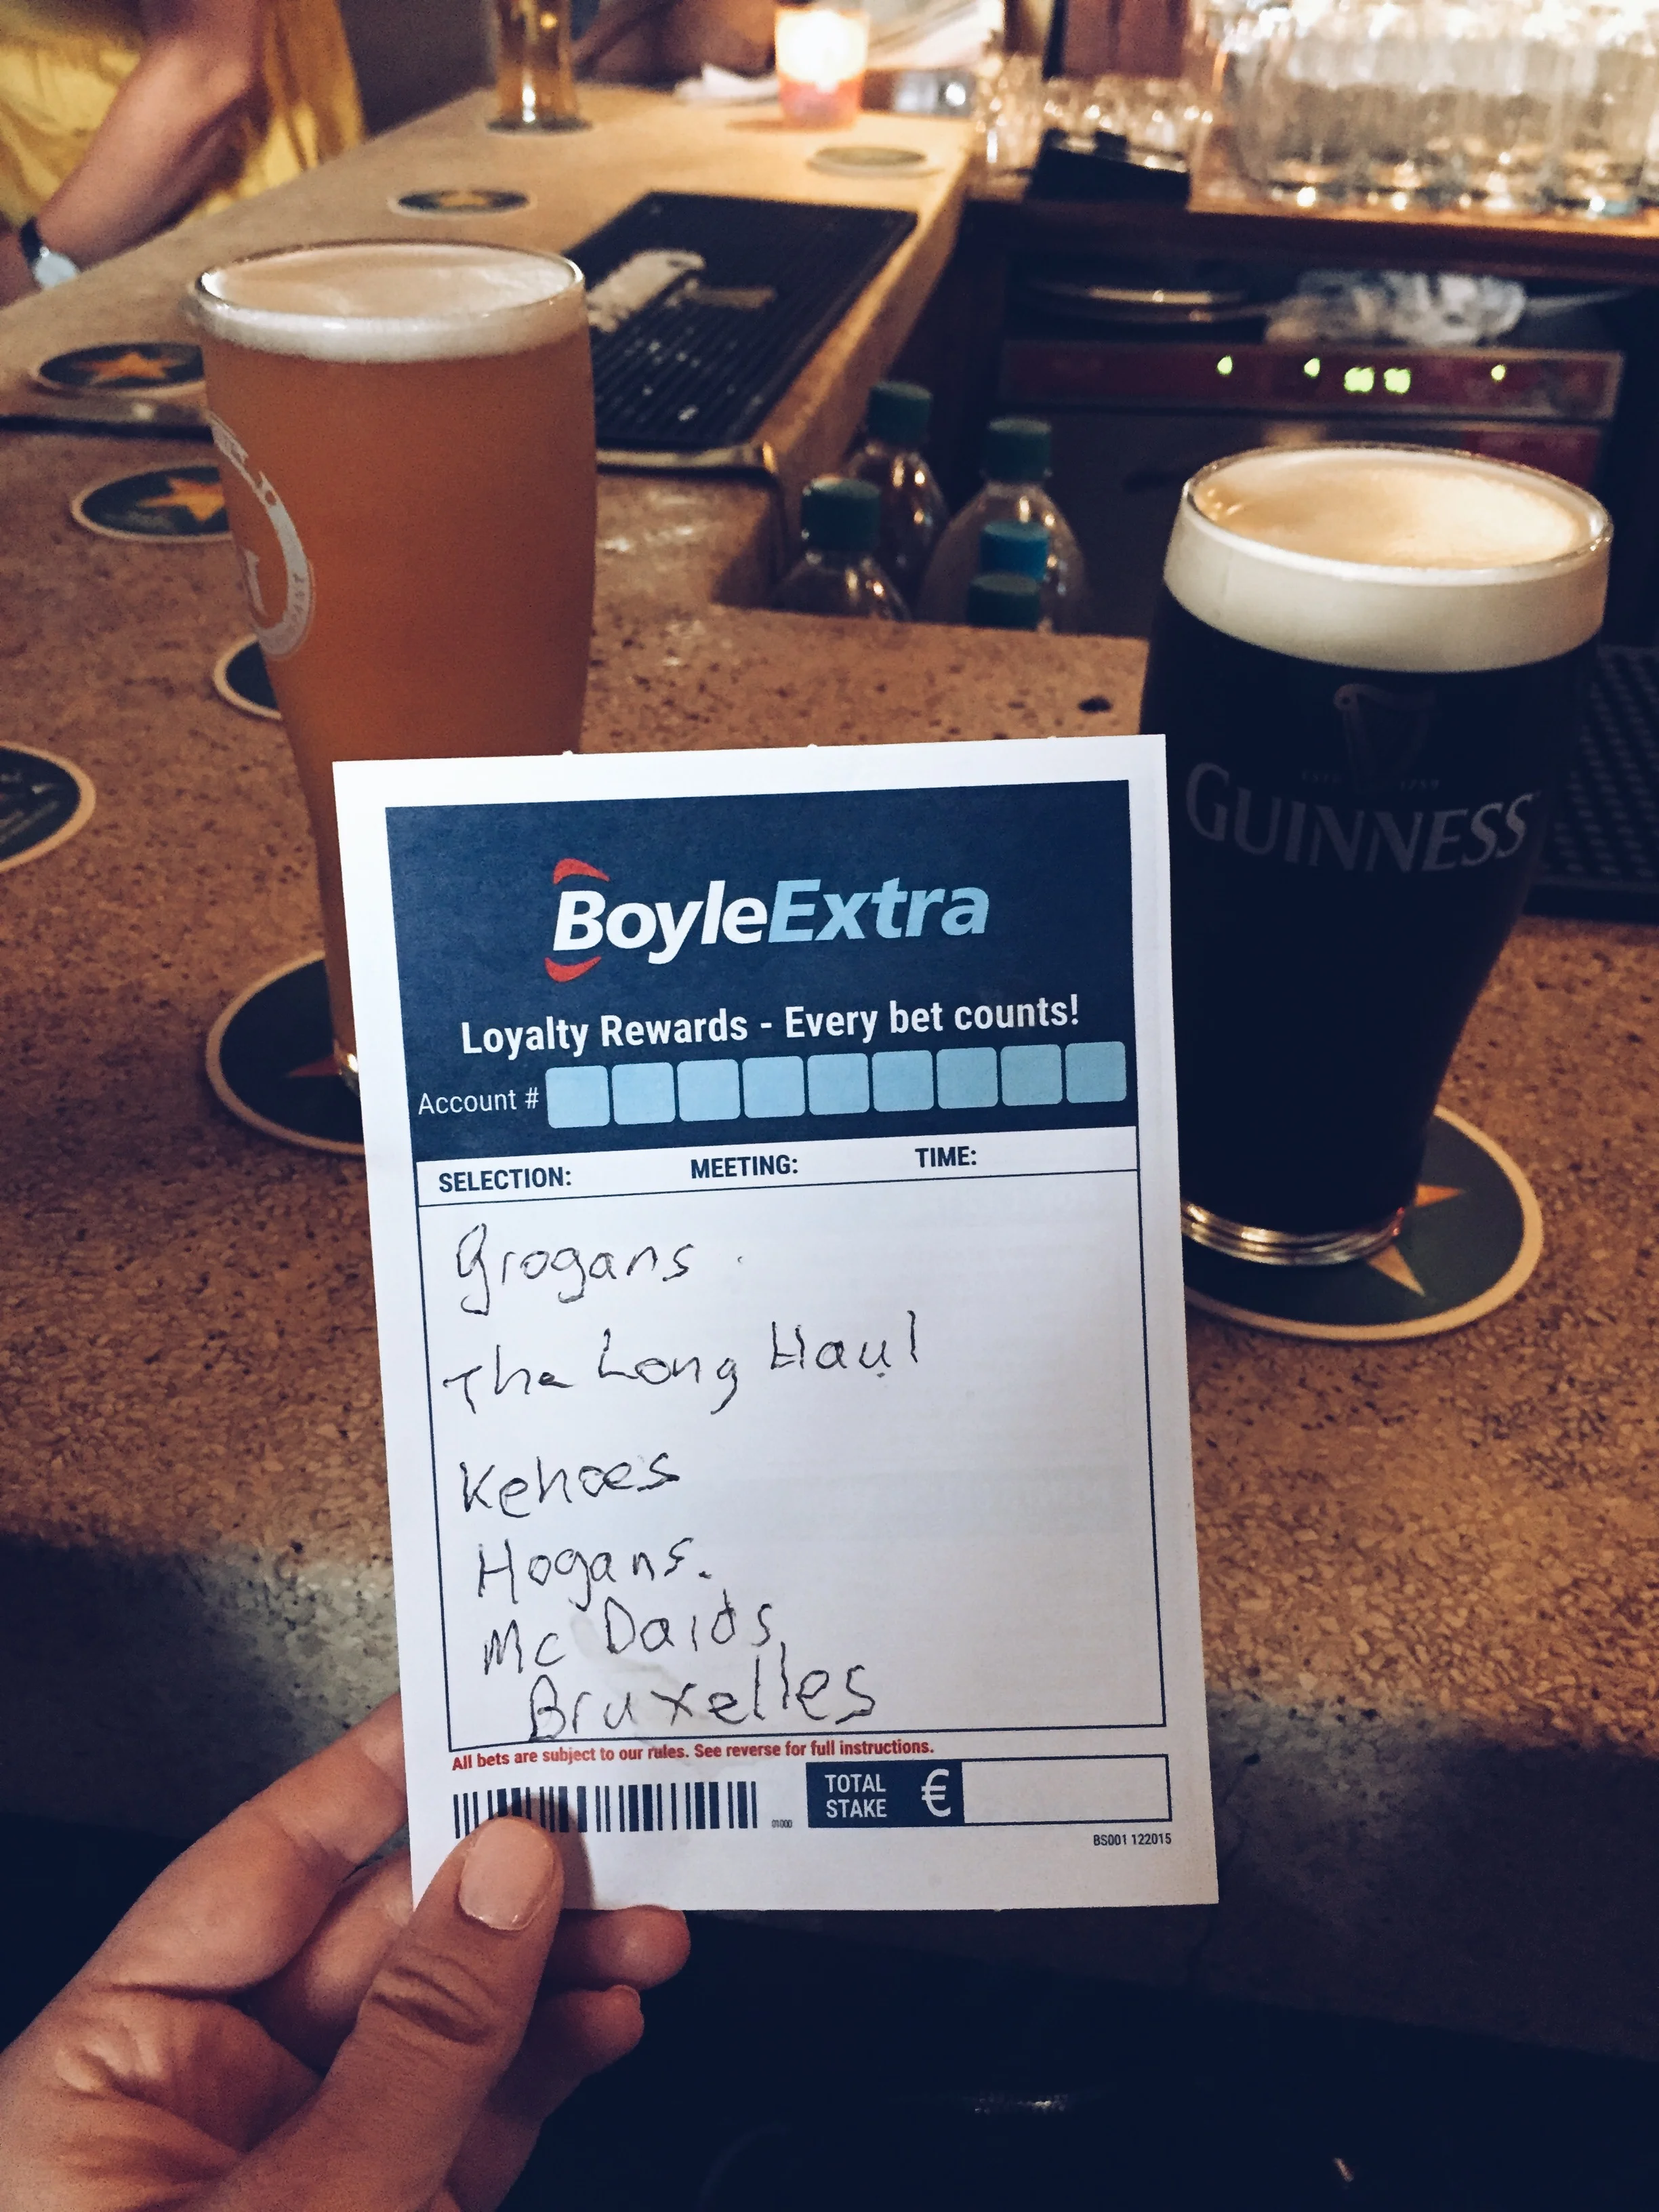 GUINNESS
BoyleExtra
Loyalty Rewards - Every bet counts!
Account #
SELECTION: MEETING: TIME:
Grogans.
The Long Haul
Kehoes
Hogans.
Mc Daids,
Bruxelles
All bets are subject to our rules. See reverse for full instructions.
01000
TOTAL STAKE €
BS001 122015